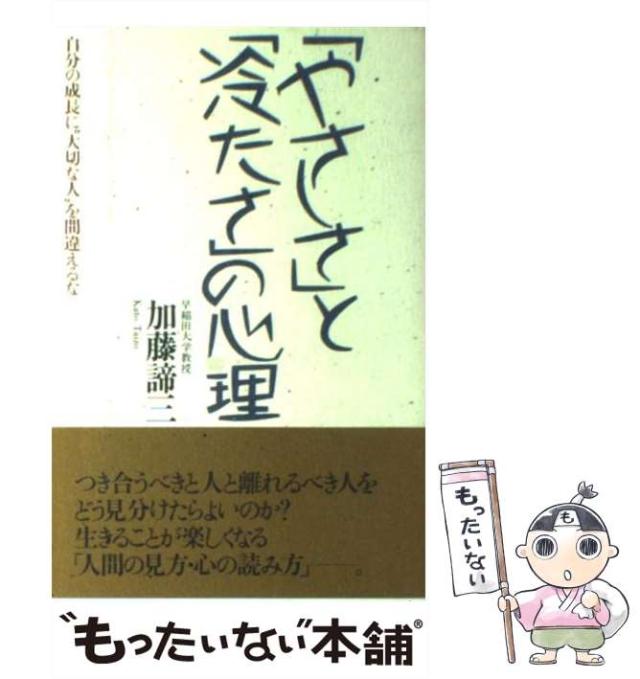 「やさしさ」と
「冷たさ」の心理
自分の成長に“大切な人”を間違えるな
早稲田大学教授
加藤諦三
Kato Taizo
つき合うべきと人と離れるべき人を
どう見分けたらよいのか?
生きることが楽しくなる
「人間の見方・心の読み方」――。
“もったいない”本舗®
もったいない
も